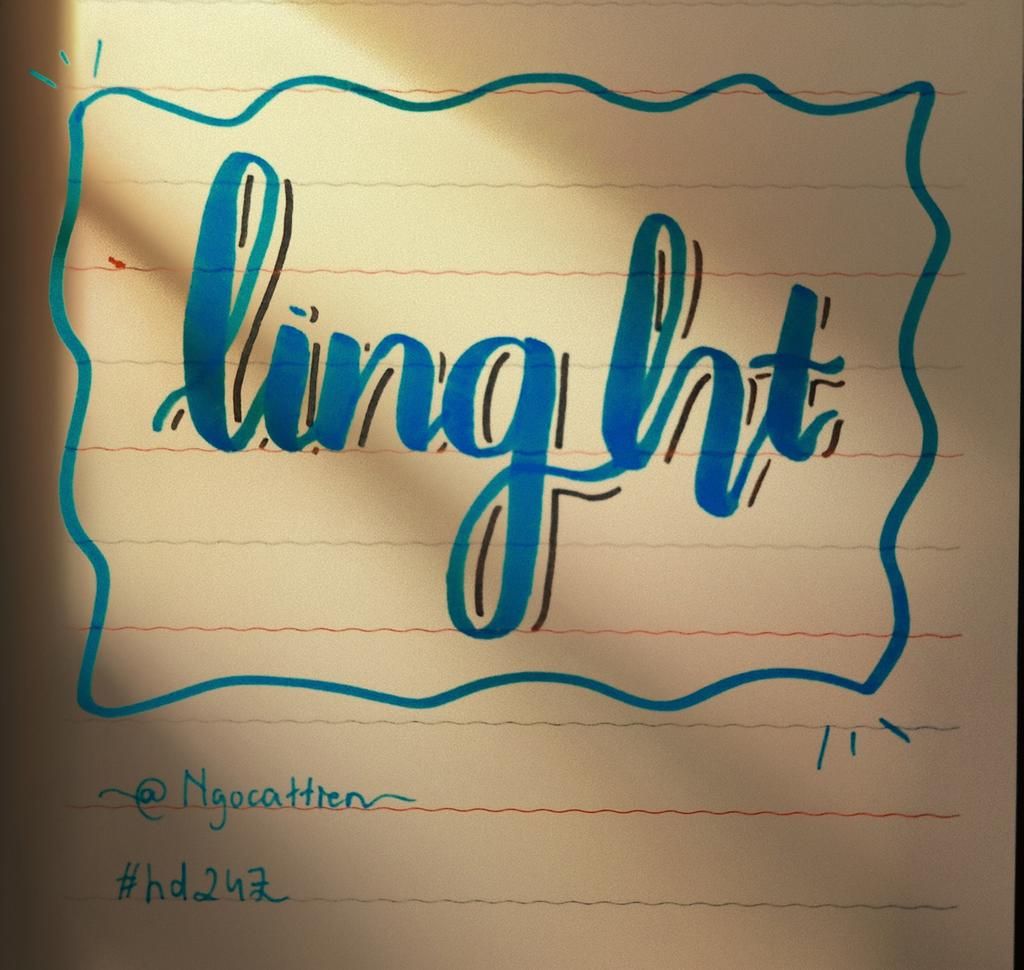 linght
~@Ngocattren~
#hd247